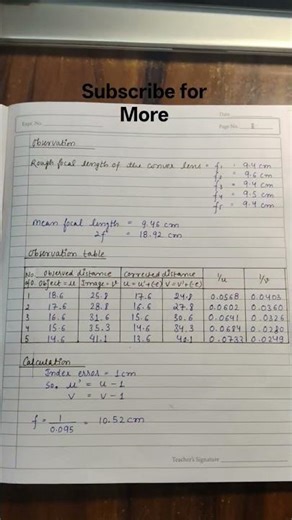 Subscribe for
More
Page No.
Date
Page No. 8
Observation
Rough focal length of the convex lens = f1 = 9.4 cm
f2 = 9.6 cm
f3 = 9.4 cm
f4 = 9.5 cm
f5 = 9.4 cm
mean focal length = 9.46 cm
2f = 18.92 cm
Observation table
No. Observed distance Corrected distance 1/u 1/v
of O. Object = u' Image = v' u = u'+(-e) v = v'+(-e)
1 18.6 25.8 17.6 24.8 0.0568 0.0403
2 17.6 28.8 16.6 27.8 0.0602 0.0360
3 16.6 31.6 15.6 30.6 0.0641 0.0326
4 15.6 35.3 14.6 34.3 0.0684 0.0280
5 14.6 41.1 13.6 40.1 0.0737 0.0249
Calculation
Index error = 1 cm
So, u' = u - 1
v = v - 1
f = 1/0.095 = 10.52 cm
Teacher's Signature